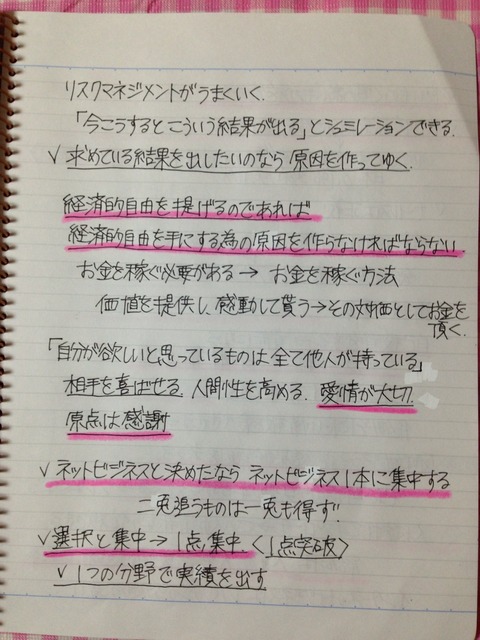 リスクマネジメントがうまくいく.
「今こうするとこういう結果が出る」とシュミレーションできる.
✓ 求めている結果を出したいのなら 原因を作ってゆく.
経済的自由を提げるのであれば
経済的自由を手にする為の原因を作らなければならない.
お金を稼ぐ必要がある → お金を稼ぐ方法
価値を提供し、感動して貰う→その対価としてお金を
頂く.
「自分が欲しいと思っているものは 全て他人が持っている」
相手を喜ばせる. 人間性を高める. 愛情が大切.
原点は感謝
✓ ネットビジネスと決めたなら ネットビジネス1本に集中する
二兎追うものは一兎も得ず!!
✓ 選択と集中 → 1点集中. 〈1点突破〉
✓ 1つの分野で実績を出す